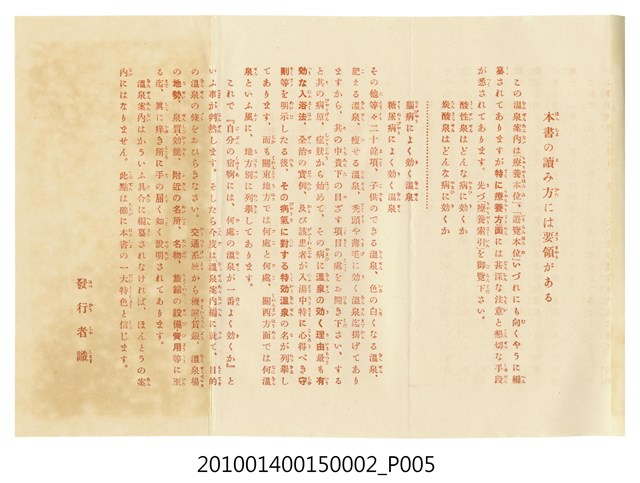 本書の讀み方には要領がある
この溫泉案内は療養本位、遊覽本位いづれにも向くやうに編
纂されてありますが特に療養方面には甚深な注意と懇切な手段
が悉されてあります。先づ療養索引を御覽下さい。
酸性泉はどんな病に効くか
炭酸泉はどんな病に効くか
腦病によく効く溫泉
糖尿病によく効く溫泉
その他等々二十餘項、子供のできる溫泉、色の白くなる溫泉、
肥える溫泉、瘦せる溫泉、禿頭や薄毛に効く溫泉迄揭げてあり
ますから、其の中貴下の目ざす項目の處をお開き下さい、する
と其の病原、症狀から始めて、その病に溫泉の効く理由最も有
効な入浴法、全治の實例、及び該患者が入湯中特に心得べき守
則等を明示したる後、その病氣に對する特効溫泉の名が列擧し
てあります、而も關東地方では何處と何處、關西方面では何溫
泉といふ風に、地方別に列擧してあります。
これで『自分の宿病には、何處の溫泉が一番よく効くか』と
いふ事が判然します。そしたら今度は溫泉案内編に就て、目的
の溫泉の條をおひらきなさい。交通系統から機味質量、溫泉場
の地勢、泉質効能、附近の名所、名物、旅館の設備費用等に至
る迄、眞に痒き所に手の屆く如く說明されてあります。
溫泉案内はかういふ具合に編纂されなければ、ほんとうの案
内にはなりません。此點は確に本書の一大特色と信じます。
發行者識
201001400150002_P005